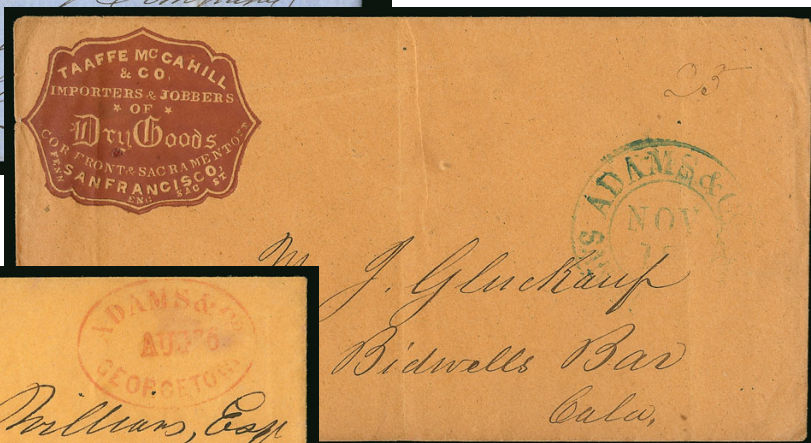 Company
TAAFFE MCCAHILL
& CO.
IMPORTERS & JOBBERS
* OF *
Dry Goods
COR FRONT & SACRAMENTO STS
SAN FRANCISCO.
ENG SAC ST
25
ADAMS & C
NOV
18
M J. Gluckauf
Bidwells Bar
Cala,
ADAMS & CO
AUG 26
GEORGETOWN
William, Esq